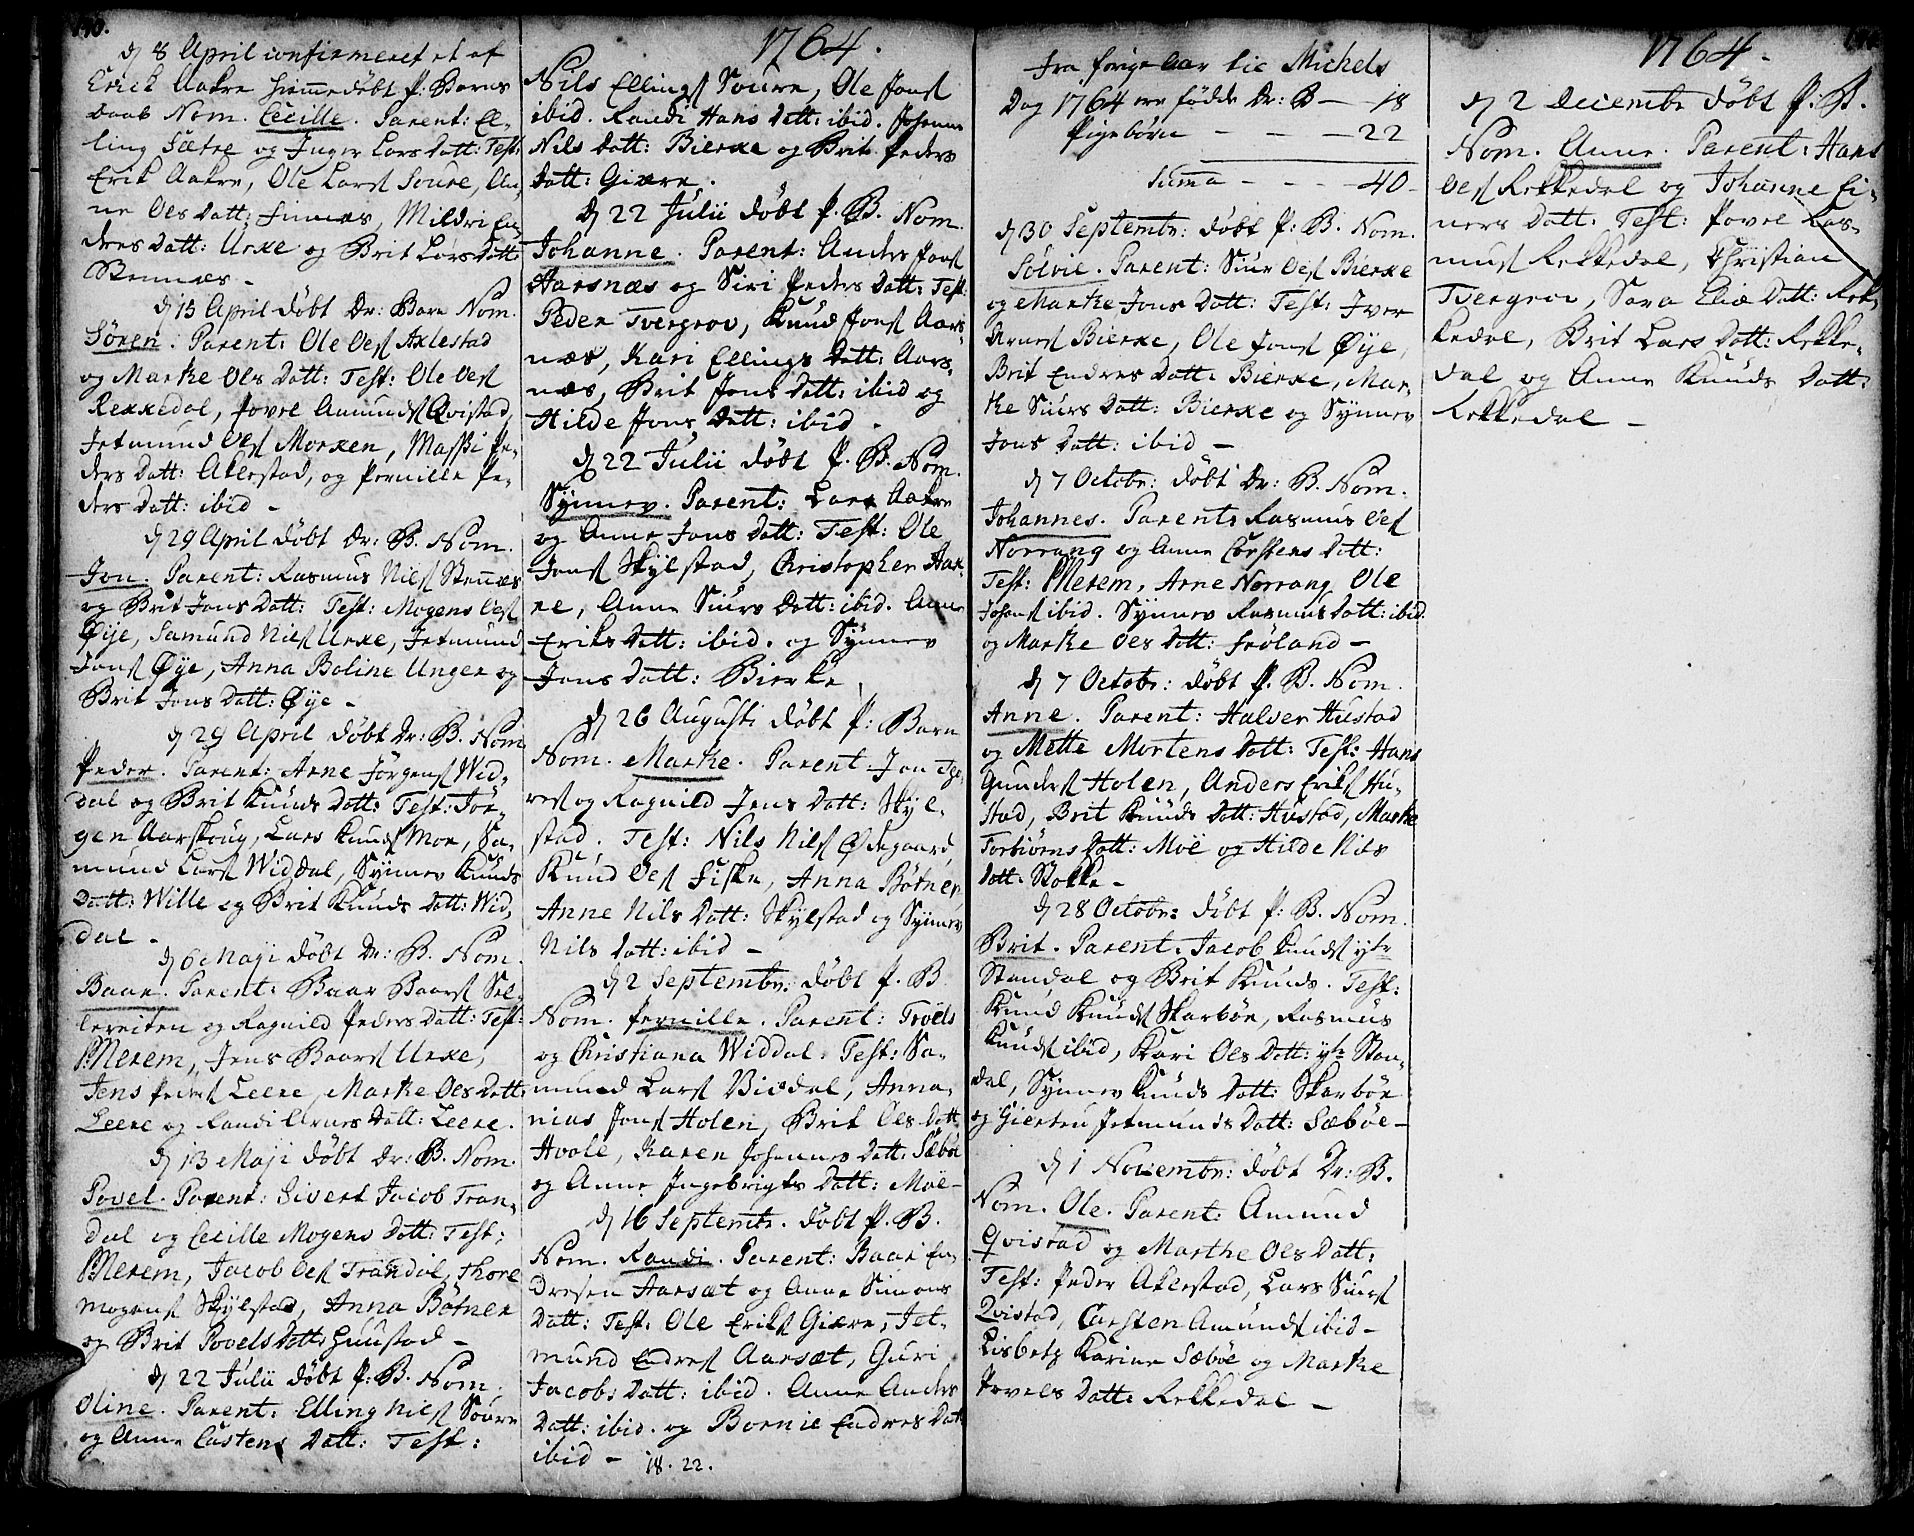 140.
d 8 April confirmeret et af
Erick Aakre hiemmedøbt P: Barns
daab Nom. Cecille. Parent: El-
ling Sætre og Inger Lars Datt: Test:
Erik Aakre, Ole Lars Soure, An-
ne Ols Datt: Finnæs, Mildri En-
dres Datt: Urke og Brit Lars Datt:
Stennæs -
d 15 April døbt Dr: Barn Nom.
Sören. Parent: Ole Ols Axlestad
og Marke Ols Datt: Test: Ole Ols
Rekkedal, Povel Amunds Qvistad,
Jetmund Ols Morken, Massi Pe-
ders Datt: Aklestad, og Pernille Pe-
ders Datt: ibid -
d 29 April døbt Dr: B. Nom.
Jon. Parent: Rasmus Nils Stennæs
og Brit Jons Datt: Test: Mogens Ols
Øije, Samund Nils Urke, Jetmund
Jons Øije, Anna Boline Unger og
Brit Jons Datt: Øije -
d 29 April døbt Dr: B. Nom
Peder. Parent: Arne Jörgens Wid-
dal og Brit Knuds Datt: Test: Jör-
gen Aarskoug, Lars Knuds Moe, Sa-
mund Lars Widdal, Synnev Knuds
Datt: Wille og Brit Knuds Datt: Wid-
dal -
d 6 Maji døbt Dr: B. Nom.
Baar. Parent: Baar Baars Sel-
lereiten og Ragnild Peders Datt: Test:
Merem, Jens Baars Urke,
Jens Peders Leere, Marke Ols Datt:
Leere og Randi Arnes Datt: Leere.
d 13 Maji døbt Dr: B. Nom.
Povel. Parent: Sivert Jacob Tran-
dal og Cecille Mogens Datt: Test:
Merem, Jacob Ols Trandal, Thore
Mogens Skylstad, Anna Bøtner
og Brit Povels Datt: Huustad -
d 22 Julii døbt P: B. Nom.
Oline. Parent: Elling Nils Soure
og Anne Castens Datt: Test:
1764.
Nils Ellings Soure, Ole Jons
ibid. Randi Hans Datt: ibid. Johanne
Nils Datt: Bierke og Brit Peders
Datt: Giære.
d 22 Julii døbt P. B. Nom.
Johanne. Parent: Anders Jons
Aarsnæs og Siri Peders Datt: Test:
Peder Tvergrov, Knud Jons Aars-
næs, Kari Ellings Datt: Aars-
næs, Brit Jons Datt: ibid og
Hilde Jons Datt: ibid -
d 22 Julii døbt P. B. Nom.
Synnev. Parent: Lars Aakre
og Anne Jons Datt: Test: Ole
Jons Skylstad, Christopher Aak-
re, Anne Siurs Datt: ibid. Anne
Eriks Datt: ibid. og Synnev
Jons Datt: Bierke
d 26 Augusti døbt P: Barn
Nom. Marke. Parent: Jon
og Ragnild Jens Datt: Skyl-
stad. Test: Nils Nils Ødegaard,
Knud Ols Fiske, Anna Bøtner,
Anne Nils Datt: Skylstad og Synnev
Nils Datt: ibid -
d 2 Septembr: døbt P. B
Nom. Pernille. Parent: Troels
og Christiana Widdal. Test: Sa-
mund Lars Viddal, Anna-
nias Jons Holen, Brit Ols Datt:
Hvole, Karen Johannes Datt: Sæbø
og Anne Ingebrigts Datt: Moe -
d 16 Septembr. døbt P. B.
Nom. Randi. Parent: Baar En-
dresen Aarsæt og Anne Simons
Datt: Test: Ole Eriks Giære, Jet-
mund Endres Aarsæt, Guri
Jacobs Datt: ibid. Anne Anders
Datt: ibid. og Bornie Endres Datt:
ibid - 18. 22.
Fra forige Aar til Michels
Dag 1764 ere fødde Dr: B - 18
Pigebørn - - - 22
Summa - - - 40 -
d 30 Septembr: døbt P: B. Nom.
Solvie. Parent: Siur Ols Bierke
og Marke Jons Datt: Test: Iver
Arnes Bierke, Ole Jons Øije,
Brit Endres Datt: Bierke, Mar-
ke Siurs Datt: Bierke og Synnev
Jons Datt: ibid -
d 7 Octobr: døbt Dr: B. Nom.
Johannes. Parent: Rasmus Ols
Norrang og Anne Corstens Datt:
Test: Merem, Arne Norrang, Ole
Johans ibid. Synnev Rasmus Datt: ibid.
og Marke Ols Datt: Frøland -
d 7 Octobr: døbt P. B. Nom.
Anne. Parent: Halver Hustad
og Mette Mortens Datt: Test: Hans
Gunders Holen, Anders Eriks Hu-
stad, Brit Knuds Datt: Hustad, Marke
Torbiörns Datt: Moe og Hilde Nils
Datt: Stokke -
d 28 Octobr: døbt P: B. Nom.
Brit. Parent: Jacob Knuds ytr
Standal og Brit Knuds. Test:
Knud Knuds Skarbøe, Rasmus
Knuds ibid, Kari Ols Datt: ytr Stan-
dal, Synnev Knuds Datt: Skarbøe
og Giertru Jetmunds Datt: Sæbøe -
d 1 Novembr: døbt Dr: B.
Nom. Ole. Parent: Amund
Qvistad og Marthe Ols Datt:
Test: Peder Aklestad, Lars Siurs
Qvistad, Carsten Amunds ibid -
Lisbeth Karine Sæbøe og Marke
Povels Datt: Rekkedal -
1764.
d 2 Decembr døbt P: B.
Nom. Anne. Parent: Hans
Ols Rekkedal og Johanne Ei-
ners Datt: Test: Povel Ras-
mus Rekkedal, Christian
Tvergrov, Sara Eliæ Datt: Rek-
kedal, Brit Lars Datt: Rekke-
dal og Anne Knuds Datt:
Rekkedal -